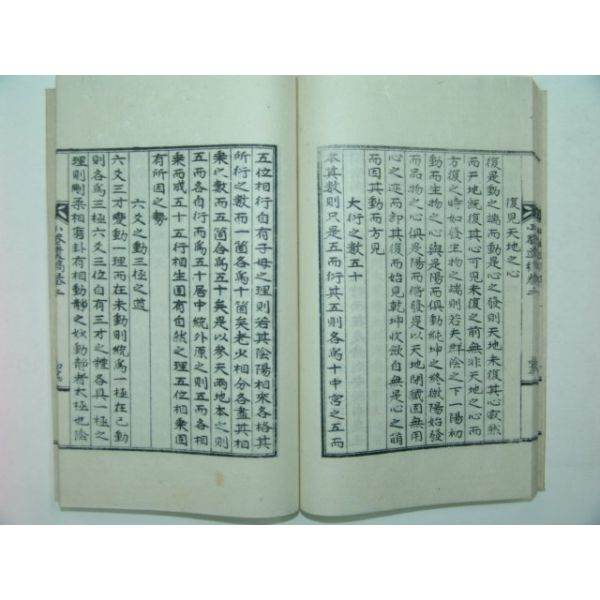 復見天地之心
復是動之端而動是心之發則天地未復其心寂然
而天地旣復其心可見未復之前無非天地之心而
方復之時如發生物之端則若夫群陰之下一陽初
動而生物之心與是陽而俱動純坤之終微陽始發
而品物之心俱是陽而偕發是以天地閉藏固無用
心之迹而卽其復而始見乾坤收斂自無是心之萌
而因其動而方見
大衍之數五十
本其數則只是五而衍其五則各爲十中宮之五而
五位相衍自有子母之理則若其陰陽相來各格其
所衍之數而一箇各爲十箇矣老少相分各盡其相
乘之數而五箇合爲五十矣是以參天兩地本之則
五而各自衍而爲五十居中統外原之則五而各相
乘而成五十五行相生固有自然之理五位相乘固
有所因之勢
六爻之動三極之道
六爻三才變動一理而在未動則統爲一極在已動
則各爲三極六爻三位自有三才之理各具一極之
理則剛柔相 卦有相動靜之 動靜者太極也陰